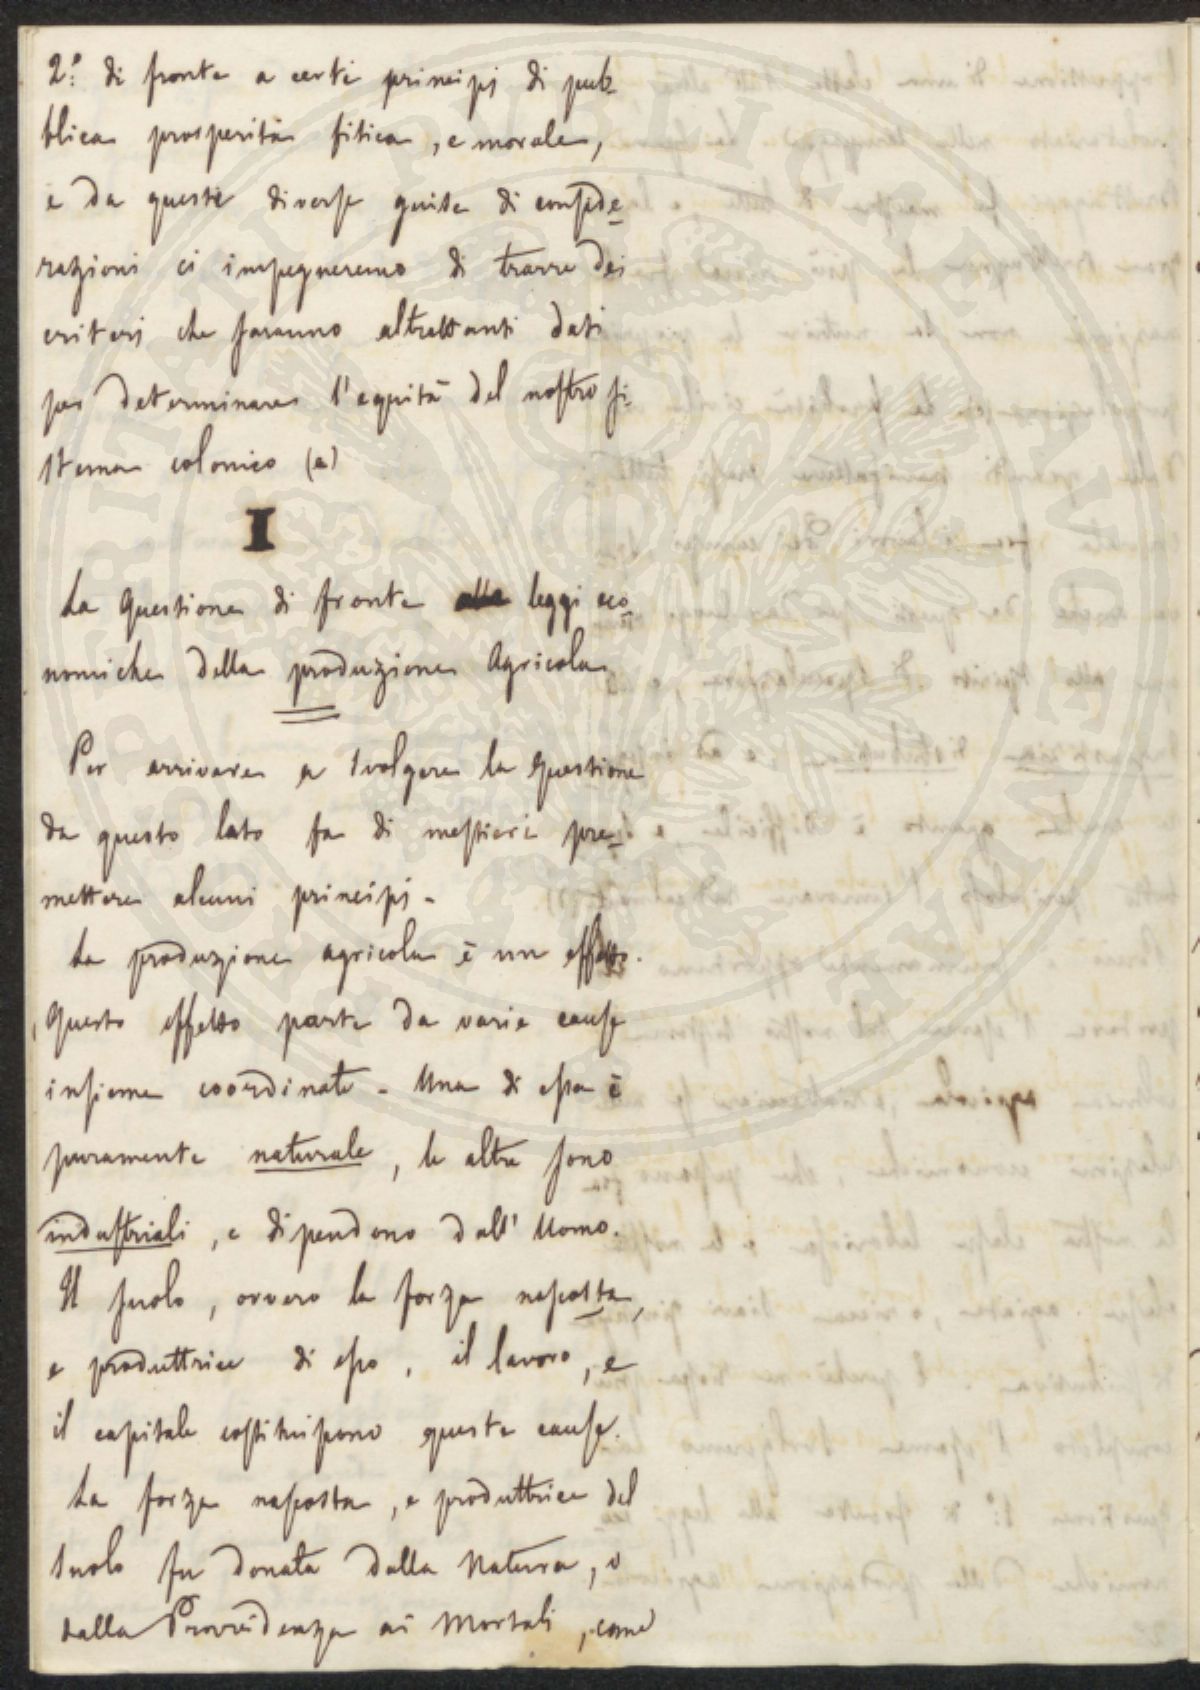 2.° di fronte a certi principj di pub-
blica prosperità fisica, e morale,
e da queste diverse guise di conside-
razioni ci impegneremo di trarre dei
criterj che saranno altrettanti dati
per determinare l'equità del nostro si-
stema colonico (a)
I
La Questione di fronte alle leggi eco-
nomiche della produzione Agricola
Per arrivare a svolgere la Questione
da questo lato fa di mestieri pre-
mettere alcuni principj.
La produzione agricola è un effetto.
Questo effetto parte da varie cause
insieme coordinate. Una di esse è
puramente naturale, le altre sono
industriali, e dipendono dall'Uomo.
Il suolo, ovvero la forza nascosta,
e produttrice di esso, il lavoro, e
il capitale costituiscono queste cause.
La forza nascosta, e produttrice del
suolo fu donata dalla Natura, o
dalla Provvidenza ai Mortali, come